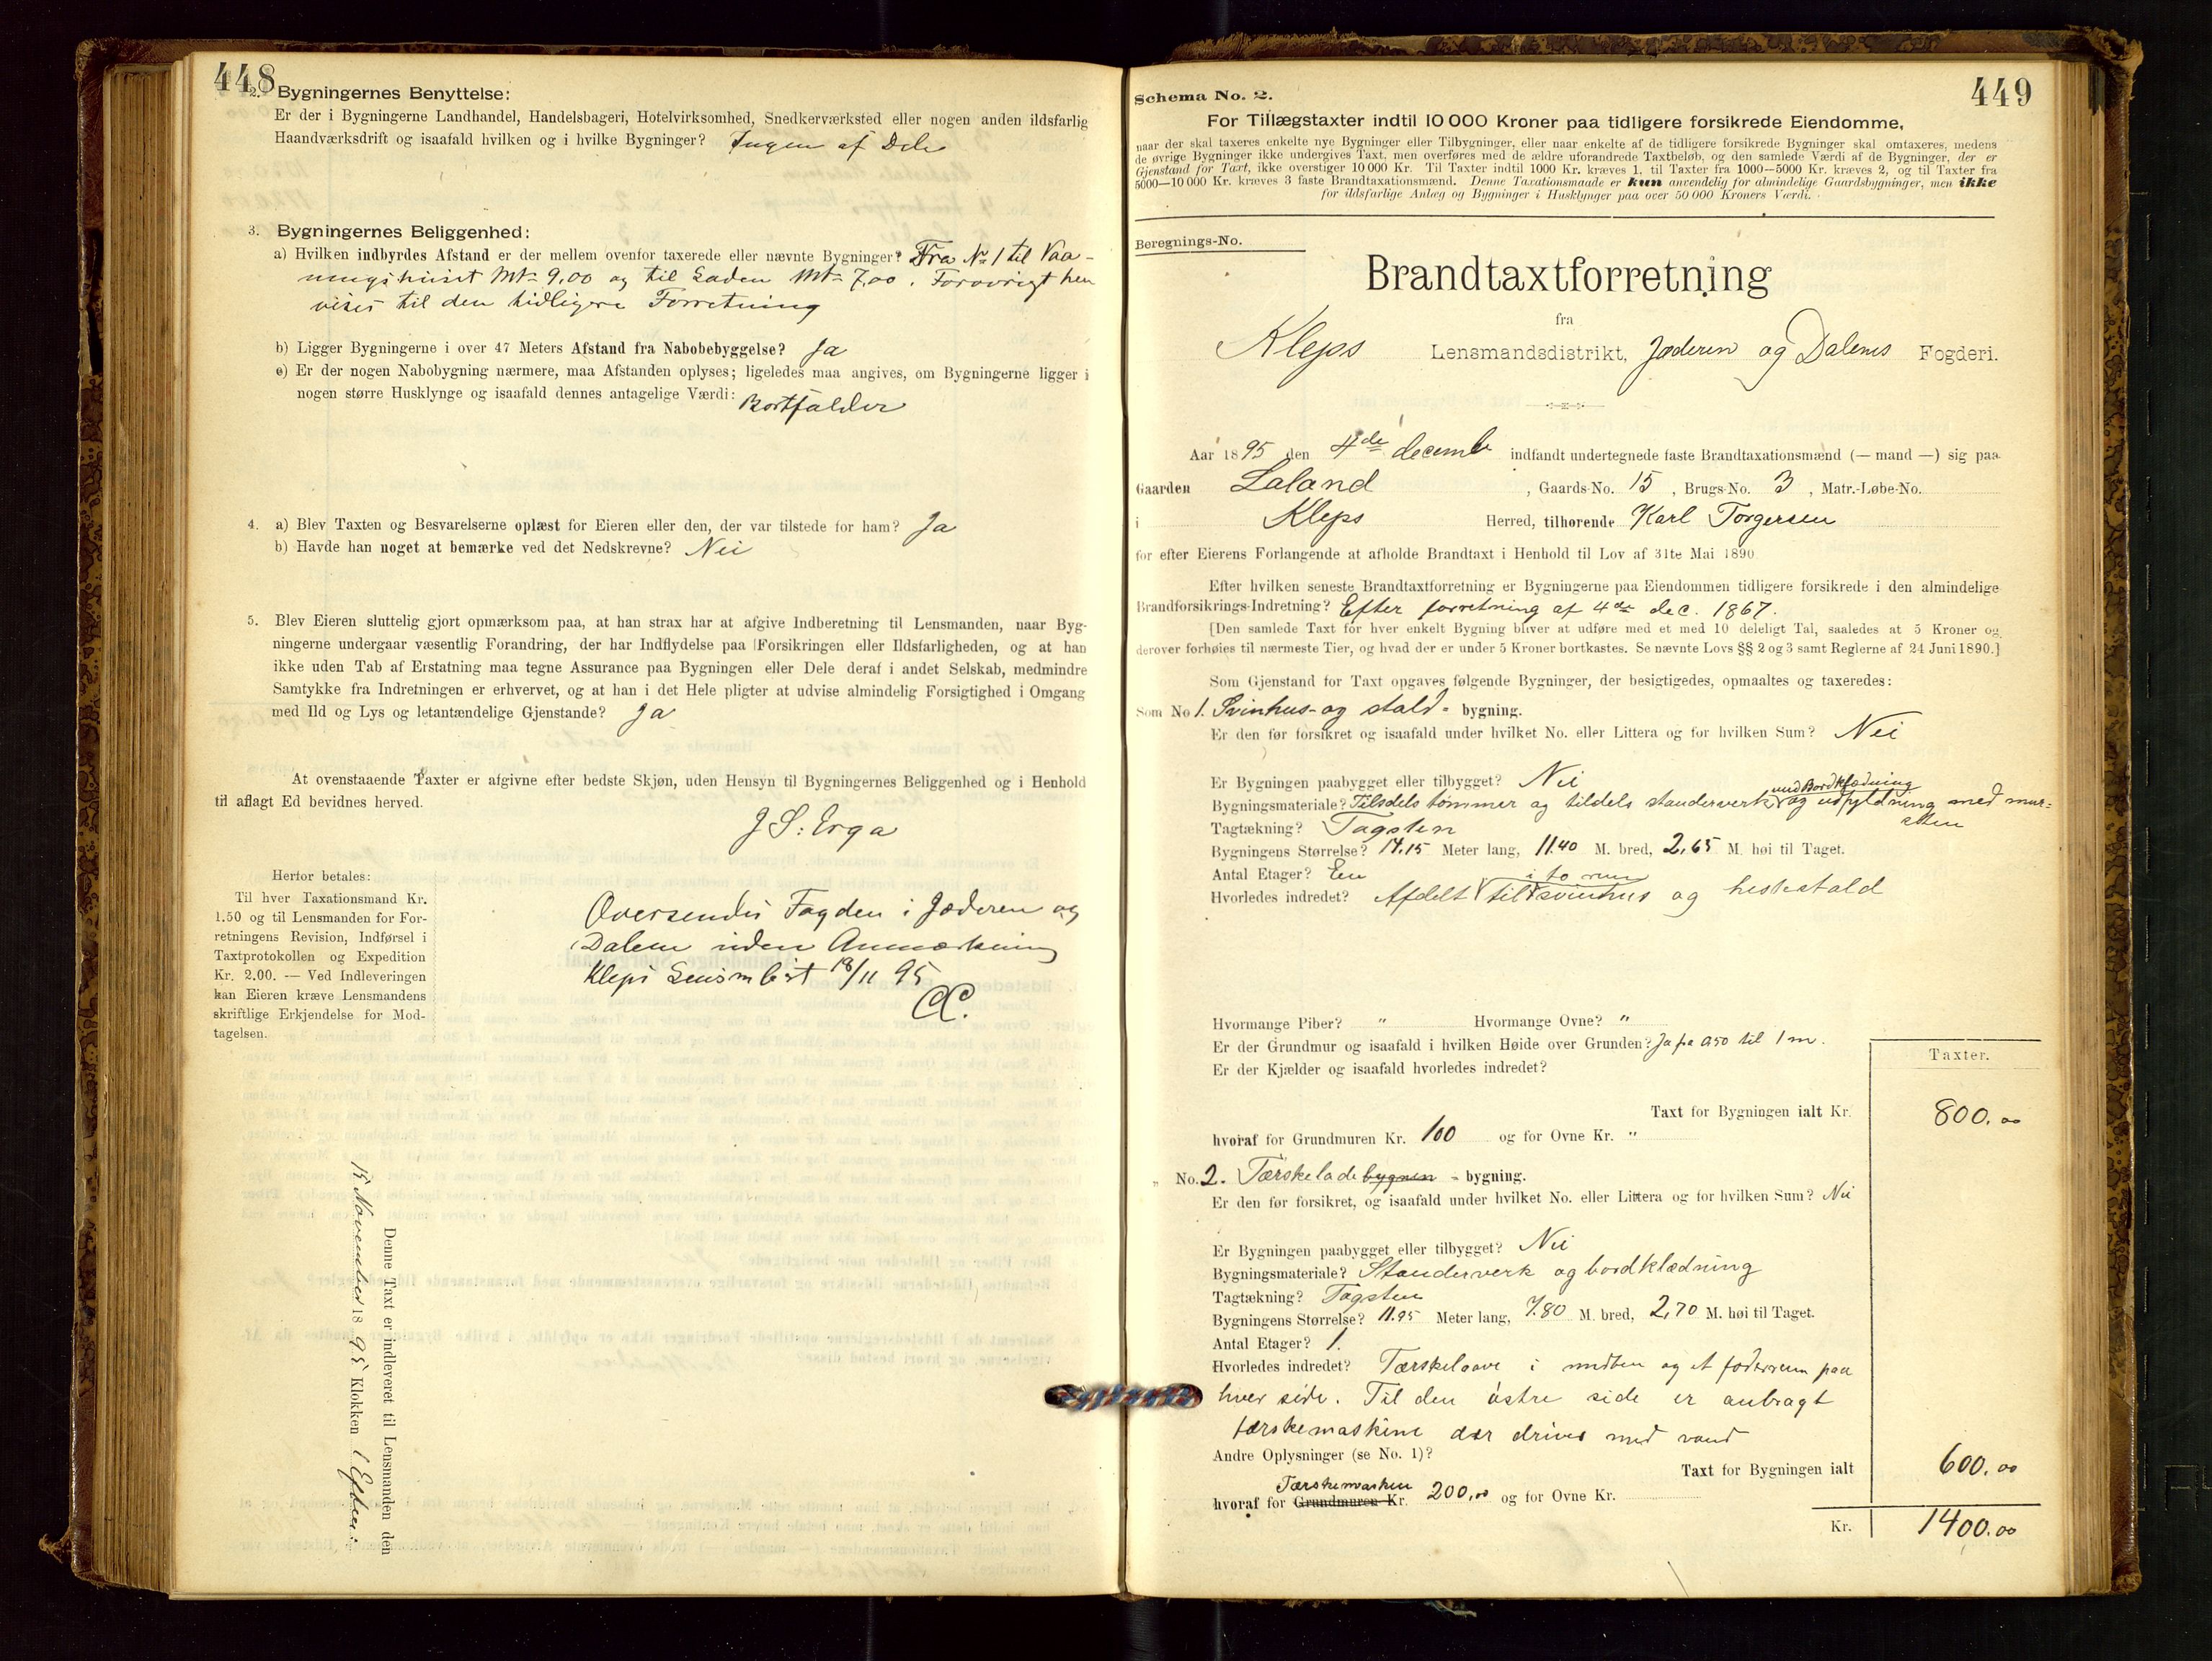 448
2. Bygningernes Benyttelse:
Er der i Bygningerne Landhandel, Handelsbageri, Hotelvirksomhed, Snedkerværksted eller nogen anden ildsfarlig
Haandværksdrift og isaafald hvilken og i hvilke Bygninger? Ingen af Dele
3. Bygningernes Beliggenhed:
a) Hvilken indbyrdes Afstand er der mellem ovenfor taxerede eller nævnte Bygninger? Fra No 1 til Vaa-
ningshuset Mt- 9,00 og til Laden Mt- 7,00. Forøvrigt hen
vises til den tidligere Forretning
b) Ligger Bygningerne i over 47 Meters Afstand fra Nabobebyggelse? Ja
c) Er der nogen Nabobygning nærmere, maa Afstanden oplyses; ligeledes maa angives, om Bygningerne ligger i
nogen større Husklynge og isaafald dennes antagelige Værdi: Bortfalder
4. a) Blev Taxten og Besvarelserne oplæst for Eieren eller den, der var tilstede for ham? Ja
b) Havde han noget at bemærke ved det Nedskrevne? Nei
5. Blev Eieren sluttelig gjort opmærksom paa, at han strax har at afgive Indberetning til Lensmanden, naar Byg-
ningerne undergaar væsentlig Forandring, der har Indflydelse paa Forsikringen eller Ildsfarligheden, og at han
ikke uden Tab af Erstatning maa tegne Assurance paa Bygningen eller Dele deraf i andet Selskab, medmindre
Samtykke fra Indretningen er erhvervet, og at han i det Hele pligter at udvise almindelig Forsigtighed i Omgang
med Ild og Lys og letantændelige Gjenstande? Ja
At ovenstaaende Taxter er afgivne efter bedste Skjøn, uden Hensyn til Bygningernes Beliggenhed og i Henhold
til aflagt Ed bevidnes herved.
J S: Erga
Herfor betales:
Til hver Taxationsmand Kr.
1.50 og til Lensmanden for For-
retningens Revision, Indførsel i
Taxtprotokollen og Expedition
Kr. 2.00. — Ved Indleveringen
kan Eieren kræve Lensmandens
skriftlige Erkjendelse for Mod-
tagelsen.
Oversendes Fogden i Jæderen og
Dalene uden Anmærkning
Kleps Lensm 18/11 95
Denne Taxt er indleveret til Lensmanden den
15 November 1895 Klokken 1 Efterm:
449
Schema No. 2.
For Tillægstaxter indtil 10 000 Kroner paa tidligere forsikrede Eiendomme,
naar der skal taxeres enkelte nye Bygninger eller Tilbygninger, eller naar enkelte af de tidligere forsikrede Bygninger skal omtaxeres, medens
de øvrige Bygninger ikke undergives Taxt, men overføres med de ældre uforandrede Taxtbeløb, og den samlede Værdi af de Bygninger, der er
Gjenstand for Taxt, ikke overstiger 10 000 Kr. Til Taxter indtil 1000 Kr. kræves 1, til Taxter fra 1000—5000 Kr. kræves 2, og til Taxter fra
5000—10 000 Kr. kræves 3 faste Brandtaxationsmænd. Denne Taxationsmaade er kun anvendelig for almindelige Gaardsbygninger, men ikke
for ildsfarlige Anlæg og Bygninger i Husklynger paa over 50 000 Kroners Værdi.
Beregnings-No.
Brandtaxtforretning
fra
Kleps Lensmandsdistrikt, Jæderen og Dalenes Fogderi.
Aar 1895 den 4de decemb indfandt undertegnede faste Brandtaxationsmænd (— mand —) sig paa
Gaarden Laland , Gaards-No. 15 , Brugs-No. 3 , Matr.-Løbe-No.
i Kleps Herred, tilhørende Karl Torgersen
for efter Eierens Forlangende at afholde Brandtaxt i Henhold til Lov af 31te Mai 1890
Efter hvilken seneste Brandtaxtforretning er Bygningerne paa Eiendommen tidligere forsikrede i den almindelige
Brandforsikrings-Indretning? Efter forretning af 4de dec. 1867.
[Den samlede Taxt for hver enkelt Bygning bliver at udføre med et med 10 deleligt Tal, saaledes at 5 Kroner og
derover forhøies til nærmeste Tier, og hvad der er under 5 Kroner bortkastes. Se nævnte Lovs §§ 2 og 3 samt Reglerne af 24 Juni 1890.]
Som Gjenstand for Taxt opgaves følgende Bygninger, der besigtigedes, opmaaltes og taxeredes:
Som No 1. Svinhus- og stald- bygning.
Er den før forsikret og isaafald under hvilket No. eller Littera og for hvilken Sum? Nei
Er Bygningen paabygget eller tilbygget? Nei
med Bordklædning
Bygningsmateriale? Tilsdels tømmer og tildels standerverk og udfyldning med mur-
sten
Tagtækning? Tagsten
Bygningens Størrelse? 14.15 Meter lang, 11.40 M. bred, 2,65 M. høi til Taget.
Antal Etager? En
i to rum
Hvorledes indredet? Afdelt til svinhus og hestestald
Hvormange Piber? " Hvormange Ovne? "
Er der Grundmur og isaafald i hvilken Høide over Grunden? Ja pa 0,50 til 1 m.
Er der Kjælder og isaafald hvorledes indredet?
Taxter.
Taxt for Bygningen ialt Kr. 800.00
hvoraf for Grundmuren Kr. 100 og for Ovne Kr. "
" No. 2. Tærskelade bygnen - bygning.
Er den før forsikret, og isaafald under hvilket No. eller Littera og for hvilken Sum? Nei
Er Bygningen paabygget eller tilbygget? Nei
Bygningsmateriale? Standerverk og bordklædning
Tagtækning? Tagsten
Bygningens Størrelse? 11.95 Meter lang, 7.80 M. bred, 2,70 M. høi til Taget.
Antal Etager? 1.
Hvorledes indredet? Tærskelaave i midten og et foderrum paa
hver side. Til den østre side er anbragt
tærskemaskine der drives med vand
Andre Oplysninger (se No. 1)?
Taxt for Bygningen ialt 600.00
Tærskemasken
hvoraf for Grundmuren Kr. 200,00 og for Ovne Kr.
Kr. 1400.00